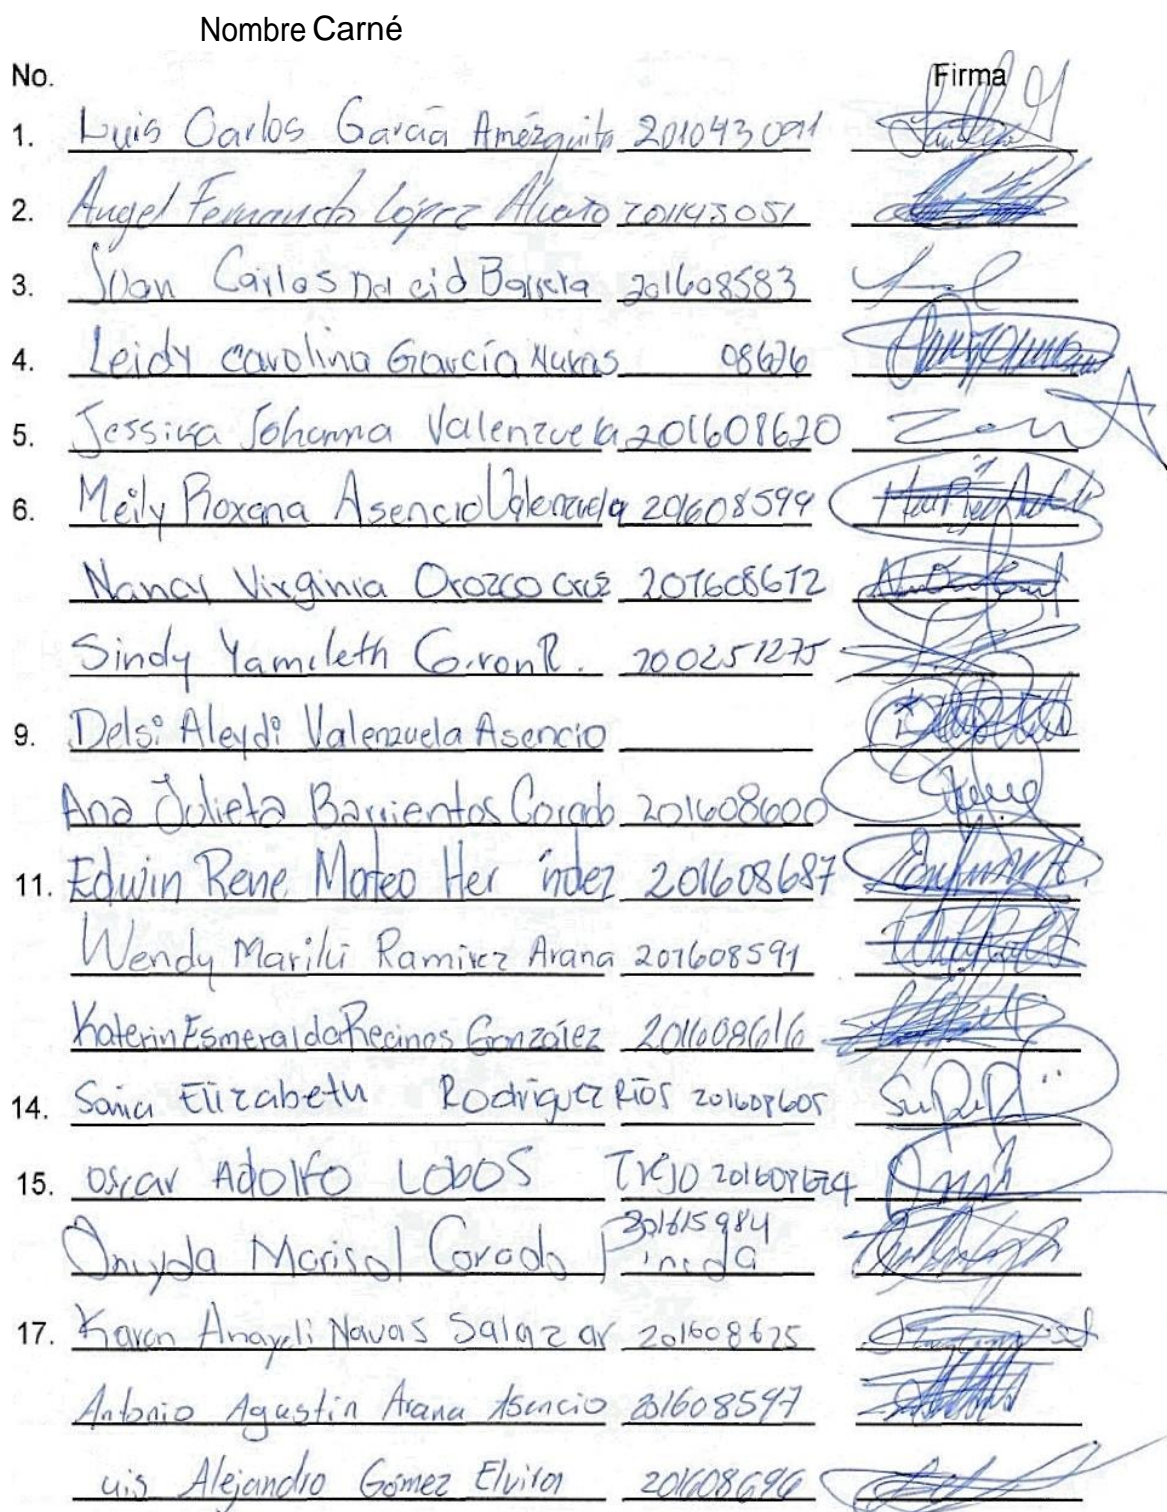 Nombre Carné
No. Firma
1. Luis Carlos García Amézquita 201043091
2. Angel Fernando López 201143051
3. Juan Carlos Del cid Barrera 201608583
4. Leidy carolina García 08626
5. Jessica Johanna Valenzuela 201608620
6. Meily Roxana Asencio Valenzuela 201608594
Nancy Virginia Orozco cruz 201608612
Sindy Yamileth Giron R. 200251275
9. Delsi Aleydi Valenzuela Asencio
Ana Julieta Barrientos Corado 201608600
11. Edwin Rene Mateo Her ndez 201608687
Wendy Marilú Ramirez Arana 201608591
Katerin Esmeralda Recinos González 201608616
14. Elizabeth Rodríguez Ríos 201608605
15. Oscar ADOlfo LObOS 201608674
201615984
Marisol Corado Pineda
17. Karen Anayeli Navas Salazar 201608625
Antonio Agustin Arana Asencio 201608597
uis Alejandro Gómez Elvira 201608696